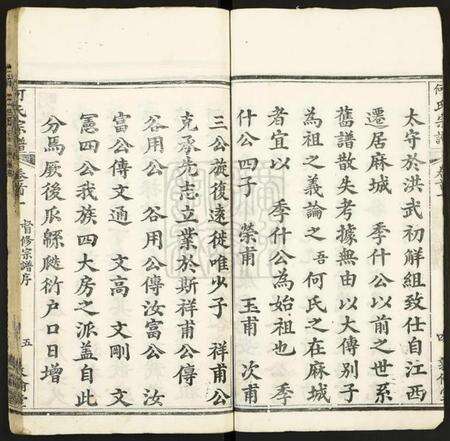 太守於洪武初解組致仕自江西
遷居麻城 季什公以前之世系
舊譜散失考據無由以大傳別子
為祖之義論之吾何氏之在麻城
者宜以 季什公為始祖也 季
什公四子 榮甫 玉甫 次甫
何氏宗譜 卷首一 督修宗譜序 五
三公旋復遠徙唯少子 祥甫公
克承先志立業於斯祥甫公傳
谷用公 谷用公傳汝富公 汝
富公傳文通 文高 文剛 文
憲四公我族四大房之派蓋自此
分焉厥後瓜緜瓞衍户口日增